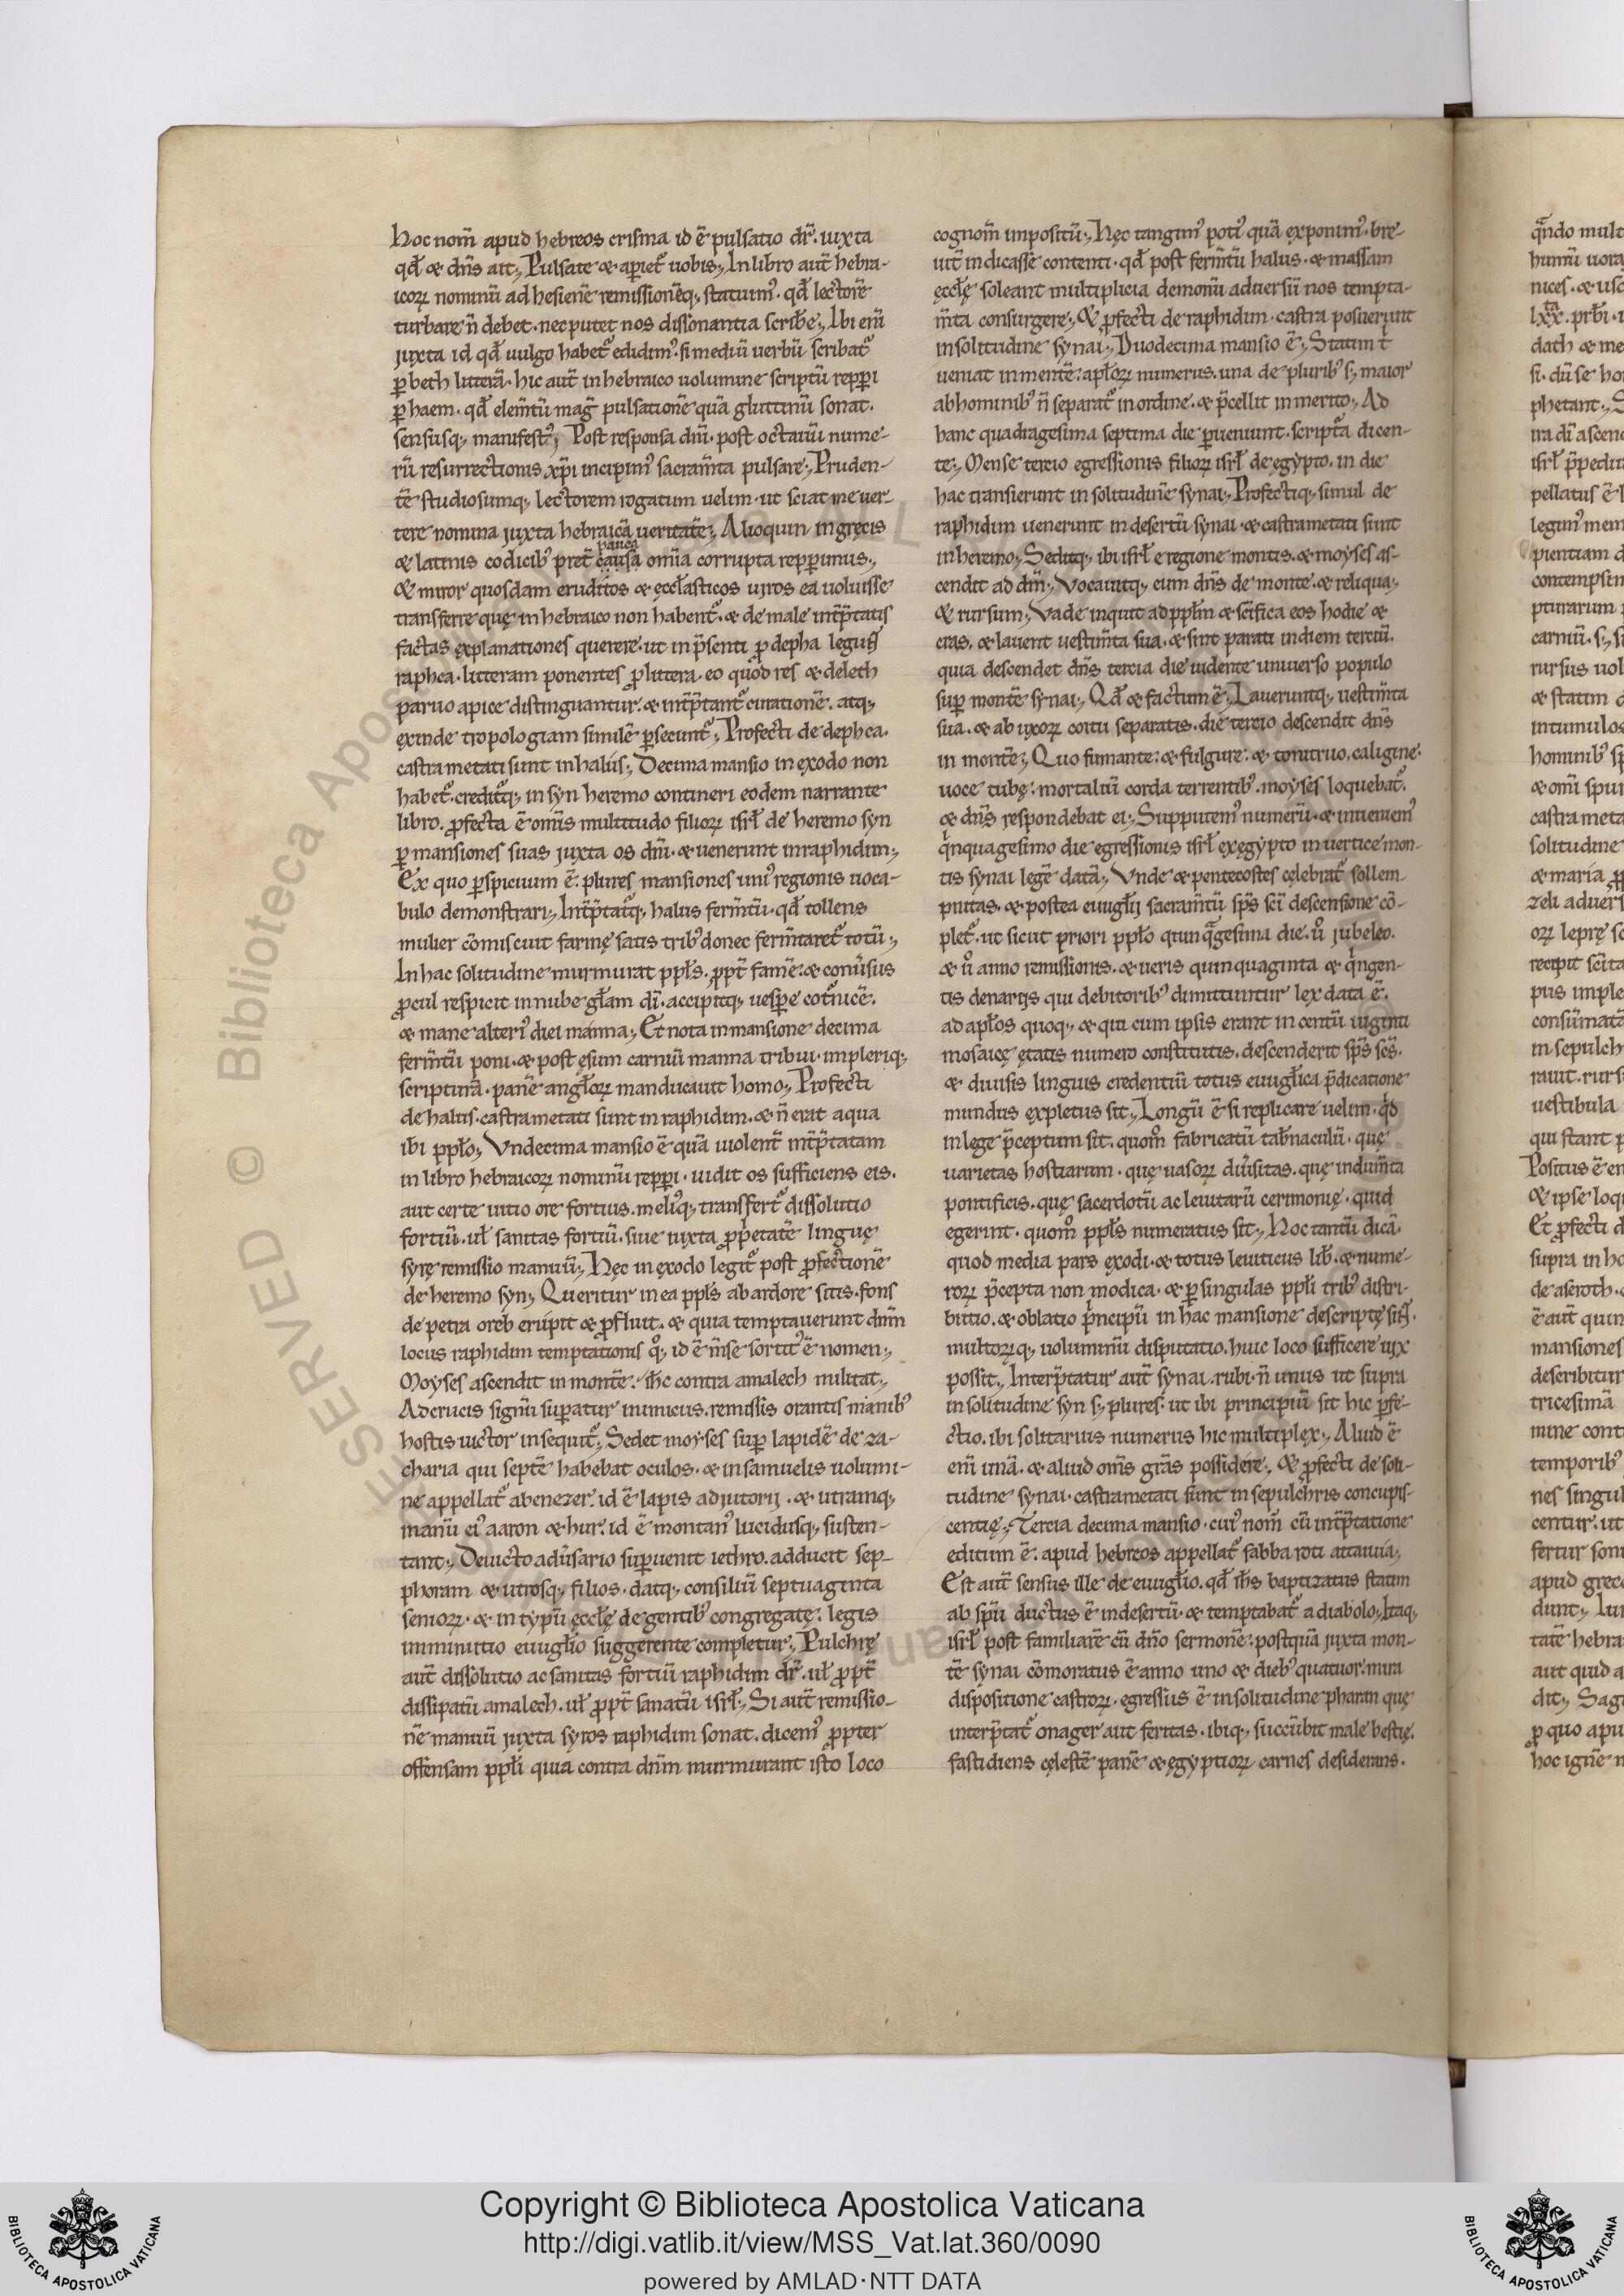 hoc nom̄ apud hebreos crisma id ē pulsatio dr̄. iuxta
qđ & dn̄s ait., Pulsate & apiet᷑ uobis., In libro aut̄ hebra-
icoꝝ nominū ad hesienē remissionēq; statuim᷒. qđ lectorē
turbare n̄ debet. nec putet nos dissonantia scribe., Ibi eni̅
juxta id qđ uulgo habet᷑ edidim᷒. si mediū uerbū scribat᷑
ꝑ beth litterā. hic aut̄ in hebraico uolumine scriptū repꝑi
ꝑ haem. qđ elem̄tū mag̃ pulsationē quā gluttinū sonat.
sensusq; manifest᷒., Post responsa dn̄i. post octauū nume-
rū resurrectionis xp̄i incipim᷒ sacram̄ta pulsare., Pruden-
tē studiosumq; lectorem rogatum uelim. ut sciat me uer-
tere nomina juxta hebraicā ueritatē., Alioquin in gręcis
pauca
& latinis codicib᷒ pret̄ causa om̄ia corrupta repꝑimus.,
& miror quosdam eruditos & ęccłasticos uiros ea uoluisse
transferre quę in hebraico non habent᷑. & de male int̄p̄tatis
factas explanationes querere. ut in p̄senti ꝓ depha legunt
raphca. litteram ponentes ꝓ littera. eo quod res & deleth
paruo apice distinguantur. & int̄p̄tant᷑ curationē. atq;
exinde tropologiam similē ꝑsecunt᷑., Profecti de dephca.
castra metati sunt in halus., Decima mansio in exodo non
habet᷑. creditq; in syn heremo contineri eodem narrante
libro. ꝓfecta ē om̄is multitudo filioꝝ isrł de heremo syn
ꝑ mansiones suas juxta os dn̄i. & uenerunt in raphidim.,
Ex quo ꝑspicuum ē. plures mansiones uni᷒ regionis uoca-
bulo demonstrari., Int̄p̄tat᷑q; halus ferm̄tū. qđ tollens
mulier cōmiscuit farinę satis trib᷒ donec ferm̄taret᷑ totū.,
In hac solitudine murmurat ppłs. ꝓpt̄ famē. & conūsus
ꝓcul respicit in nube głam dī. accipitq; uesꝑe cot᷑nicē.
& mane alteri᷒ diei manna., Et nota in mansione decima
ferm̄tū poni. & post esum carniū manna tribui. impleriq;
scripturā. panē angłoꝝ manducauit homo., Profecti
de halus. castrametati sunt in raphidim. & n̄ erat aqua
ibi ppło., Vndecima mansio ē quā uiolent̄ int̄p̄tatam
in libro hebraicoꝝ nominū repꝑi. uidit os sufficiens eis.
aut certe uitio ore fortius. meli᷒q; transfert᷑ dissolutio
fortiū. uł sanitas fortiū. siue iuxta ꝓprietatē linguę
syrę remissio manuū., Hęc in exodo legit᷑ post ꝓfectionē
de heremo syn., Queritur in ea ppłs ab ardore sitis. fons
de petra oreb erupit & ꝓfluit. & quia temptauerunt dn̄m
locus raphidim temptationis qͦ; id ē m̄se sortit᷒ ē nomen.,
Moyses ascendit in montē. ih̄c contra amalech militat.,
Ad crucis signū suꝑatur inimicus. remissis orantis manib᷒
hostis uictor insequit᷑., Sedet moyses suꝑ lapidē de za-
charia qui septē habebat oculos. & in samuelis uolumi-
ne appellat᷑ abenezer. id ē lapis adjutorij. & utramq;
manū ei᷒ aaron & hur. id ē montan᷒ lucidusq; susten-
tant., Deuicto adūsario suꝑuenit iethro. adducit sep-
phoram & utrosq; filios. datq; consiliū septuaginta
senioꝝ. & in typū ęccłę de gentib᷒ congregatę. legis
imminutio euuglio suggerente completur., Pulchrę
aut̄ dissolutio ac sanitas fortiū raphidim dr̄. uł ꝓpt̄
dissipatū amalech. uł ꝓpt̄ sanatū isrł., Si aut̄ remissio-
nē manuū juxta syros raphidim sonat. dicem᷒ ꝓpter
offensam ppłi quia contra dn̄m murmurant isto loco
cognom̄ impositū., Hęc tangim᷒ poti᷒ quā exponim᷒. bre-
uit̄ indicasse contenti. qđ post ferm̄tū halus. & massam
ęccłę soleant multiplicia demonū aduersū nos tempta-
m̄ta consurgere., & ꝓfecti de raphidim. castra posuerunt
in solitudine synai., Duodecima mansio ē., Statim t̄
ueniat in mentē. apłoꝝ numerus. una de plurib᷒ s; maior
ab hominib᷒ n̄ separat᷑ in ordine. & p̄cellit in merito., Ad
hanc quadragesima septima die ꝑueniunt. scriptā dicen-
te., Mense tercio egressionis filioꝝ isrł de egypto. in die
hac transierunt in solitudinē synai., Profectiq; simul de
raphidim uenerunt in desertū synai. & castrametati sunt
in heremo., Seditq; ibi isrł e regione montis. & moyses as-
cendit ad dm̄., Vocauitq; eum dn̄s de monte. & reliqua.,
& rursum., Vade inquit ad ppłm & sc̄ifica eos hodie &
cras. & lauent uestim̄ta sua. & sint parati in diem terciū.
quia descendet dn̄s tercia die uidente uniuerso populo
suꝑ montē synai., Qđ & factum ē., Laueruntq; uestim̄ta
sua. & ab uxoꝝ coitu separatis. die tercio descendit dn̄s
in montē., Quo fumante. & fulgure. & tonitruo. caligine.
uoce tubę. mortaliū corda terrentib᷒. moyses loquebat᷑.
& dn̄s respondebat ei., Supputem᷒ numerū. & inueniem᷒
qͥnquagesimo die egressionis isrł ex egypto in uertice mon-
tis synai legē datā., Vnde & pentecostes celebrat᷑ sollem-
pnitas. & postea euuglij sacram̄tū sp̄s sc̄i descensione cō-
plet᷑. ut sicut priori ppło quinqᷓgesima die. uͦ jubeleo.
& uͦ anno remissionis. & ueris quinquaginta & qͥngen-
tis denarijs qui debitorib᷒ dimittuntur lex data ē.
ad apłos quoq; & qui cum ipsis erant in centū uiginti
mosaicę ętatis numero constitutis. descenderit sp̄s sc̄s.
& diuisis linguis credentiū totus euuglica p̄dicatione
mundus expletus sit., Longū ē si replicare uelim. qͥd
in lege p̄ceptum sit. quom̊ fabricatū tab̄naculū. quę
uarietas hostiarum. quę uasoꝝ diūsitas. quę indum̄ta
pontificis. quę sacerdotū ac leuitarū cerimonię. quid
egerint. quom̊ ppłs numeratus sit., Hoc tantū dicā.
quod media pars exodi. & totus leuiticus lib̄. & nume-
roꝝ p̄cepta non modica. & ꝑ singulas ppłi trib᷒ distri-
butio. & oblatio pͥncipū in hac mansione descriptę sint.
multoꝝq; uoluminū disputatio. huic loco sufficere uix
possit., Interp̄tatur aut̄ synai. rubi. n̄ unus ut supra
in solitudine syn s; plures. ut ibi principiū sit hic ꝑfe-
ctio. ibi solitarius numerus hic multiplex., Aliud ē
enī unā. & aliud om̄s grās possidere., & ꝓfecti de soli-
tudine synai. castrametati sunt in sepulchris concupis-
centię., Tercia decima mansio. cui᷒ nom̄ cū int̄p̄tatione
editum ē. apud hebreos appellat᷑ sabba roti attauia.,
Est aut̄ sensus ille de euuglio. qđ ih̄s baptizatus statim
ab spū ductus ē in desertū. & temptabat᷑ a diabolo., Itaq;
isrł post familiarē cū dn̄o sermonē. postquā juxta mon-
tē synai cōmoratus ē anno uno & dieb᷒ quatuor. mira
dispositione castroꝝ. egressus ē in solitudine pharan quę
interp̄tat᷑ onager aut feritas. ibiq; succūbit male bestię.
fastidiens cęlestē panē & egyptioꝝ carnes desiderans.
Copyright © Biblioteca Apostolica Vaticana
http://digi.vatlib.it/view/MSS_Vat.lat.360/0090
powered by AMLAD·NTT DATA
BIBLIOTECA APOSTOLICA VATICANA
BIBLIOTECA APOSTOLICA VATICANA